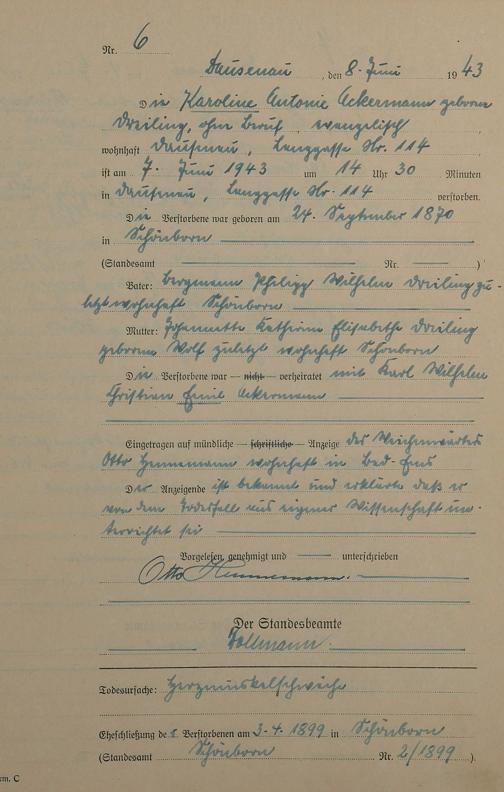 Nr. 6
Dausenau, den 8. Juni 1943
Die Karoline Antonie Ackermann geborene
Dreiling, ohne Beruf, evangelisch
wohnhaft Dausenau, Langgasse Nr. 114
ist am 7. Juni 1943 um 14 Uhr 30 Minuten
in Dausenau, Langgasse Nr. 114 verstorben.
Die Verstorbene war geboren am 24. September 1870
in Schönborn
(Standesamt Nr. )
Vater: Bergmann Philipp Wilhelm Dreiling zu-
letzt wohnhaft Schönborn
Mutter: Johannette Kathrine Elisabethe Dreiling
geborene Wolf zuletzt wohnhaft Schönborn
Die Verstorbene war — nicht — verheiratet mit Karl Wilhelm
Christian Emil Ackermann
Eingetragen auf mündliche — schriftliche — Anzeige des Weichenwärters
Otto Hennemann wohnhaft in Bad-Ems
Der Anzeigende ist bekannt und erklärte daß er
von dem Todesfall aus eigener Wissenschaft un-
terrichtet sei
Vorgelesen, genehmigt und unterschrieben
Otto Hennemann.
Der Standesbeamte
Todesursache: Herzmuskelschwäche
Eheschließung der Verstorbenen am 3-4. 1899 in Schönborn
(Standesamt Schönborn Nr. 2/1899 ).
rm. C